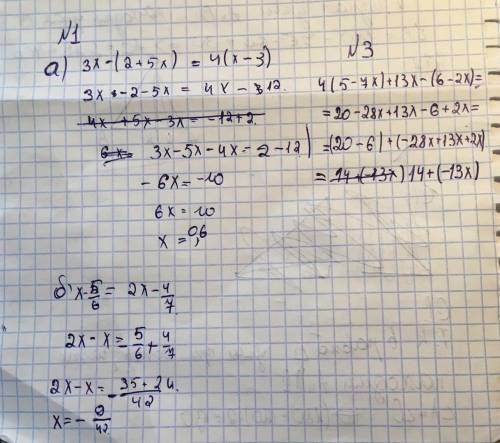 №1
а) 3x-(2+5x) = 4(x-3)
3x-2-5x = 4x-12.
4x+5x-3x=-12+2.
6x= 3x-5x-4x=2-12
-6x=-10
6x=10
x=0,6
б) x-5/6= 2x-4/7
2x-x=-5/6+4/7
2x-x=-35+24/42
x=-9/42
№3
4(5-7x)+13x-(6-2x)=
=20-28x+13x-6+2x=
=(20-6)+(-28x+13x+2x)
= 14+(-13x) 14+(-13x)